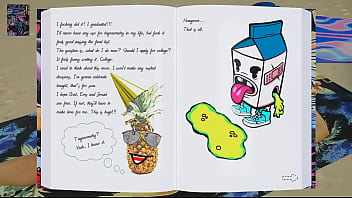 I fucking did it! I graduated!!!
I'd never have any use for trigonometry in my life, but fuck it
feels good saying the fancy shit.
The question is, what do I do now? Should I apply for college?
It feels funny writing it. College.
I need to think about this more. I won't make any rushed
decisions. I'm gonna celebrate
tonight, that's for sure.
I hope Brat, Emy and Jonah
are free. If not, they'd have to
make time for me. This is huge!!!
Trigonometry?
Yeah, I knew it.
Hungover...
That is all.